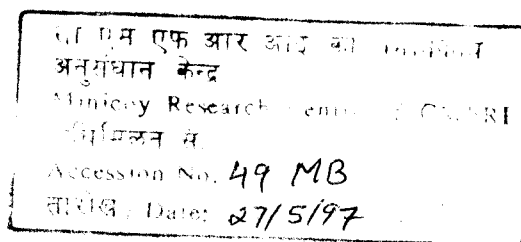 एम एफ आर आइ का
अनुसंधान केन्द्र
Minicoy Research CMFRI
सं.
Accession No. 49 MB
तारीख / Date: 27/5/97